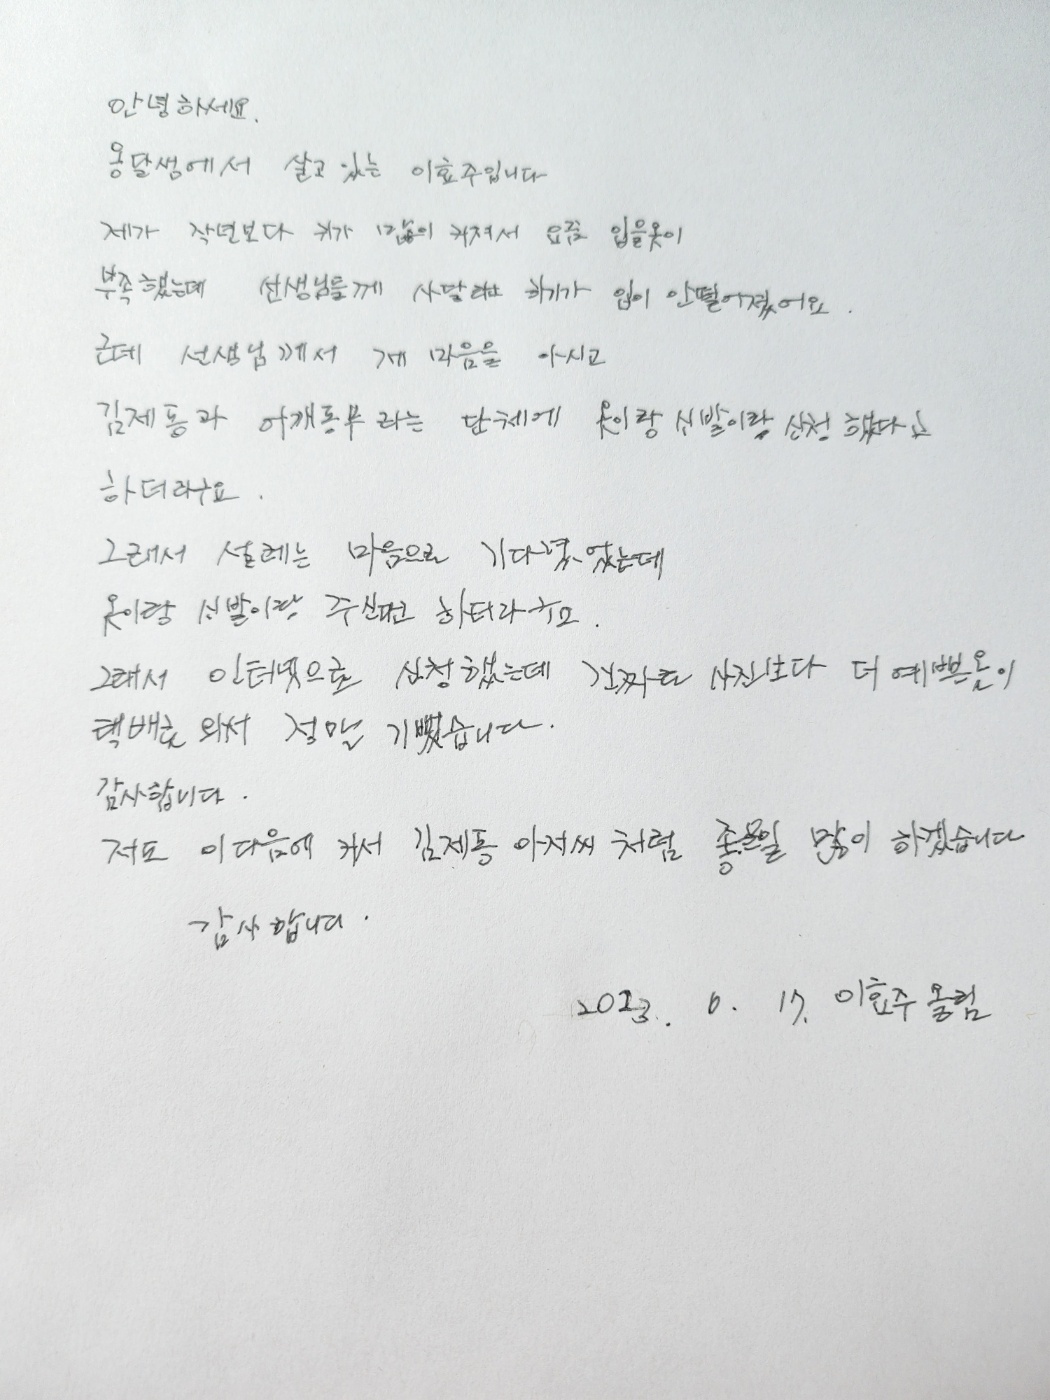 안녕하세요.
옹달샘에서 살고 있는 이효주입니다
제가 작년보다 키가 많이 커져서 요즘 입을옷이
부족했는데 선생님들께 사달라고 하기가 입이 안떨어졌어요.
근데 선생님께서 제 마음을 아시고
김제동과 어깨동무라는 단체에 옷이랑 신발이랑 신청했다고
하더라구요.
그래서 설레는 마음으로 기다렸었는데
옷이랑 신발이랑 주신다고 하더라구요.
그래서 인터넷으로 신청했는데 진짜로 사진보다 더 예쁜옷이
택배로 와서 정말 기뻤습니다.
감사합니다.
저도 이다음에 커서 김제동 아저씨처럼 좋은일 많이 하겠습니다
감사합니다.
2023. 6. 17. 이효주 올림